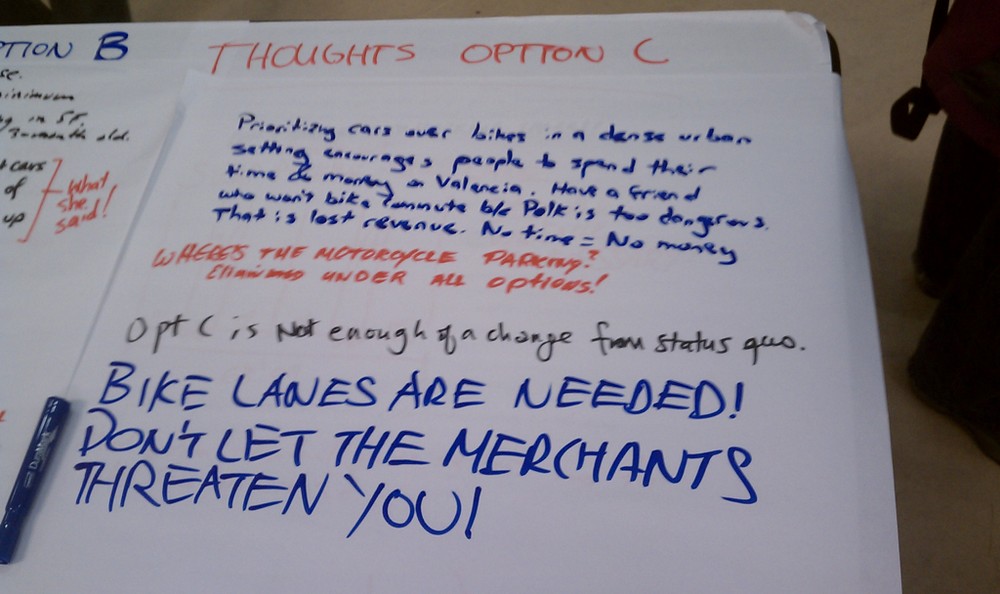 TION B
se.
minimum
g in SF.
3-month old.
cars
of
up
what
she
said!
THOUGHTS OPTION C
Prioritizing cars over bikes in a dense urban
setting encourages people to spend their
time & money on Valencia. Have a friend
who won't bike commute b/c Polk is too dangerous.
That is lost revenue. No time = No money
WHERE'S THE MOTORCYCLE PARKING?
UNDER ALL OPTIONS!
Opt C is Not enough of a change from status quo.
BIKE LANES ARE NEEDED!
DON'T LET THE MERCHANTS
THREATEN YOU!